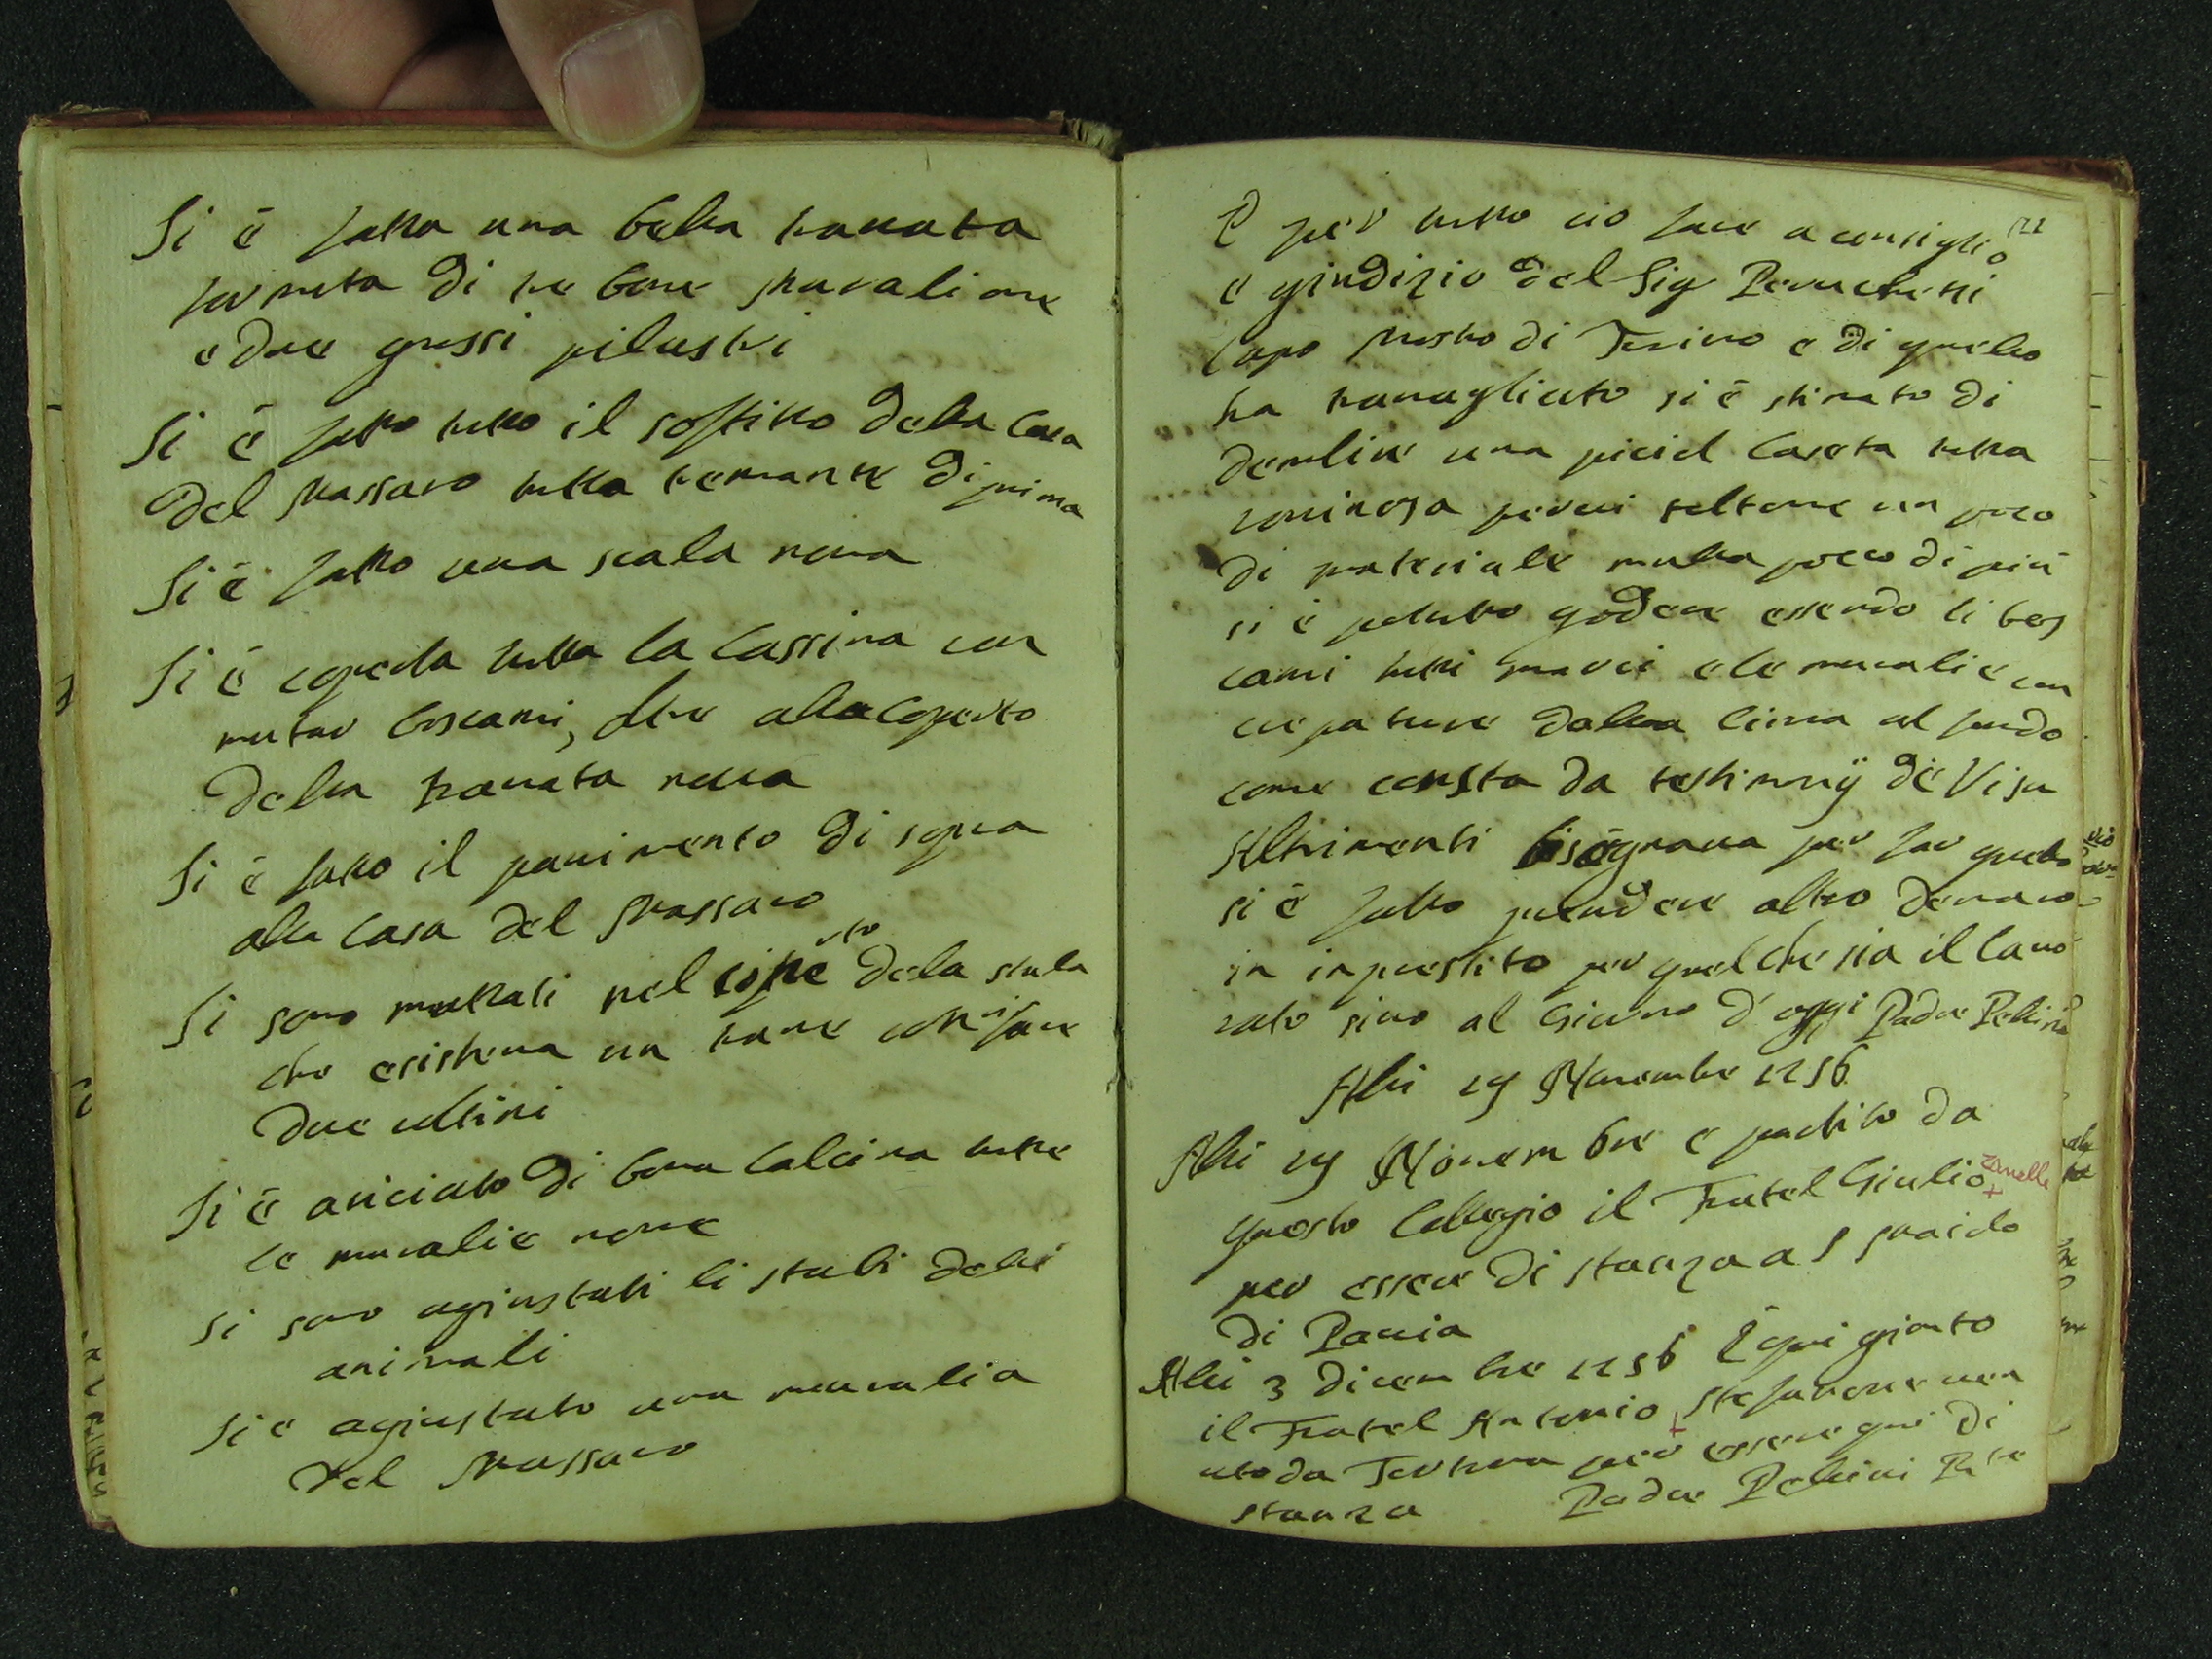 Si è fatta una bella trauata
formata di tre bone muralione
e due grossi pilastri
Si è fatto tutto il soffitto della Casa
del Massaro tutta tremante di prima
Si è fatto una scala nova
Si è coperta tutta la Cassina con
mutar boscami, oltre alla coperto
della trauata noua
Si è fatto il pauimento di sopra
alla Casa del Massaro
Si sono muttati nel coperto dela stala
che esisteua un traue con farne
due ultimi
Si è ariciato di bona Calcina tutte
le muralie noue
Si sono agiustati li stabi delli
animali
Si è agiustato una muralia
del Massaro
E per tutto ciò fare a consiglio 
e giudizio del Sig Peruchetti
Capo Mastro di Torino e di quello
ha trauagliato si è stimato di
demolire una picciol Caseta tutta
rouinosa per cui soltanto un poco
di materiale mulla poco di più
si è potuto godere essendo li bos
cami tutti marci e le muralie con
crepature dalla cima al fondo
come consta da testimonij de Visu
Altrimenti bisognaua per far quello
si è fatto prendere altro denaro
in inprestito per quel che sia il lauo
rato sino al Giorno d'oggi Padre Pellini
Alli 29 Nouembre 1756
Alli 29 Nouembre è partito da
questo Collegio il Fratel Giulio Zanelli
per essere di stanza a S Maiolo
di Pauia
Alli 3 dicembre 1756 È qui gionto
il Fratel Antonio Stefanone uen
uto da Tortona per essere qui di
stanza Padre Pellini Pte